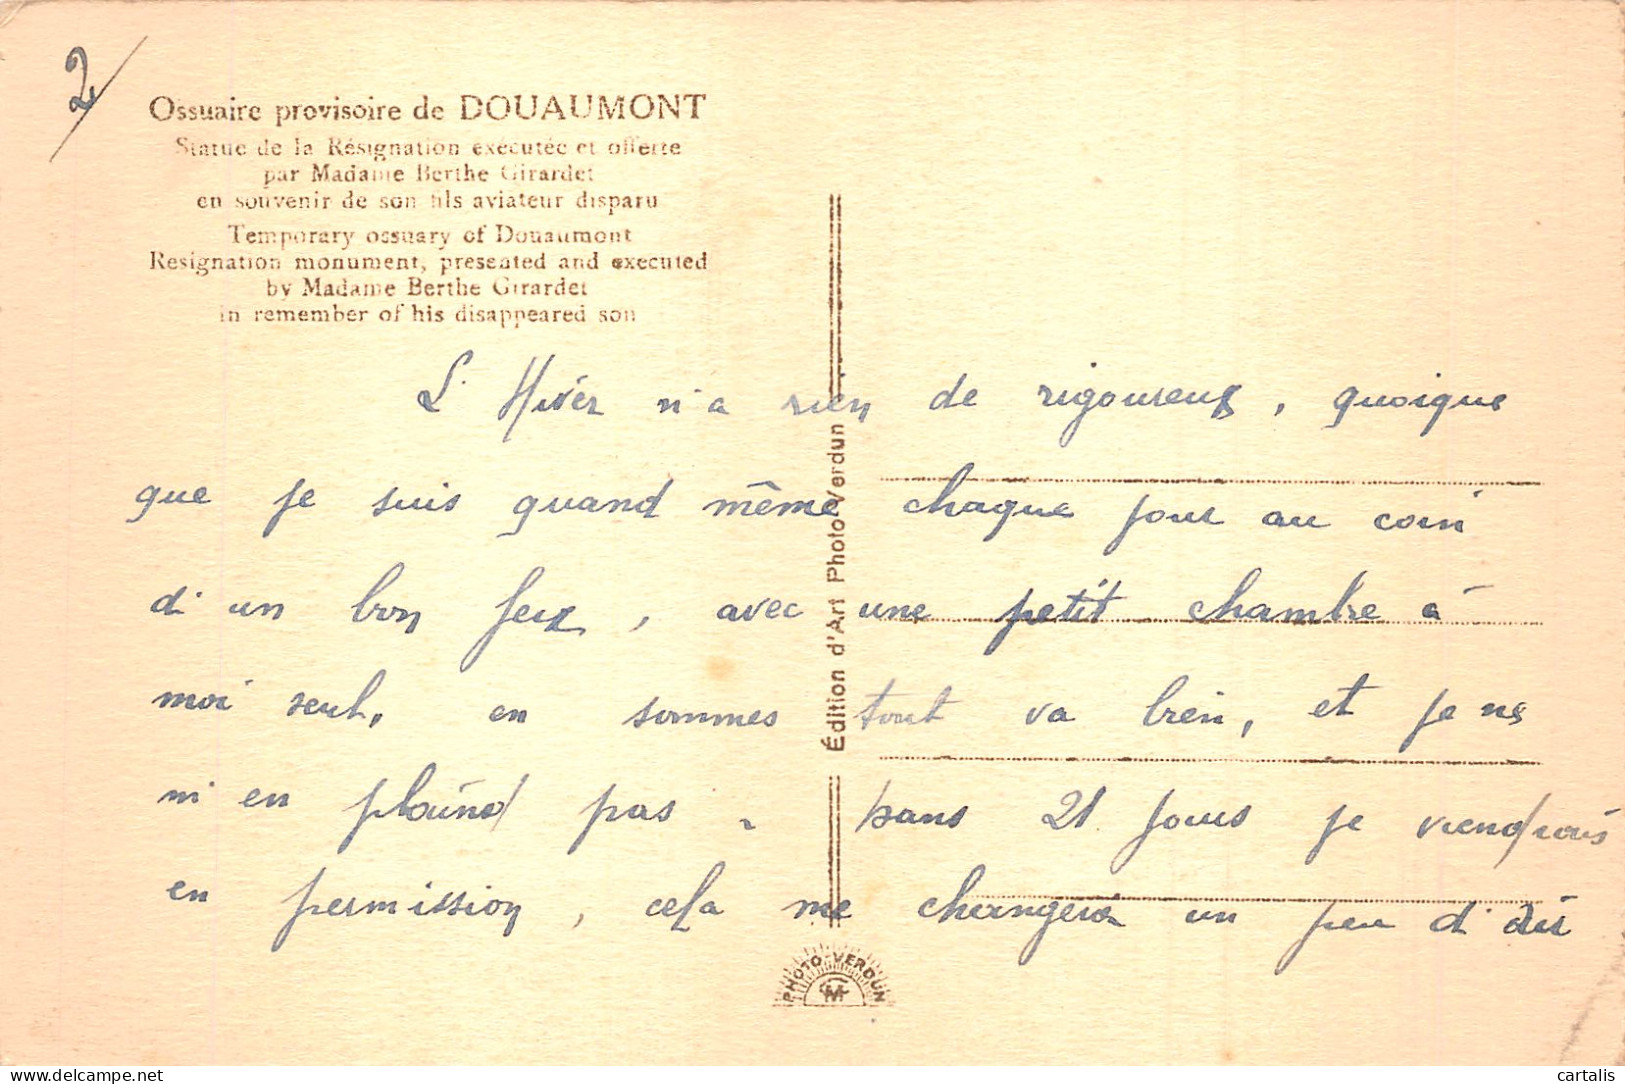 2/
Ossuaire provisoire de DOUAUMONT
Statue de la Résignation exécutée et offerte
par Madame Berthe Girardet
en souvenir de son fils aviateur disparu
Temporary ossuary of Douaumont
Resignation monument, presented and executed
by Madame Berthe Girardet
in remember of his disappeared son
L'Hiver n'a rien de rigoureux, quoique
que je suis quand même chaque jour au coin
d'un bon feux, avec une petit chambre à
moi seul, en sommes tout va bien, et je ne
m'en plaind pas. Dans 21 jours je viendrais
en permission, cela me changera un peu d'air
Édition d'Art Photo Verdun
PHOTO-VERDUN
M
cartalis